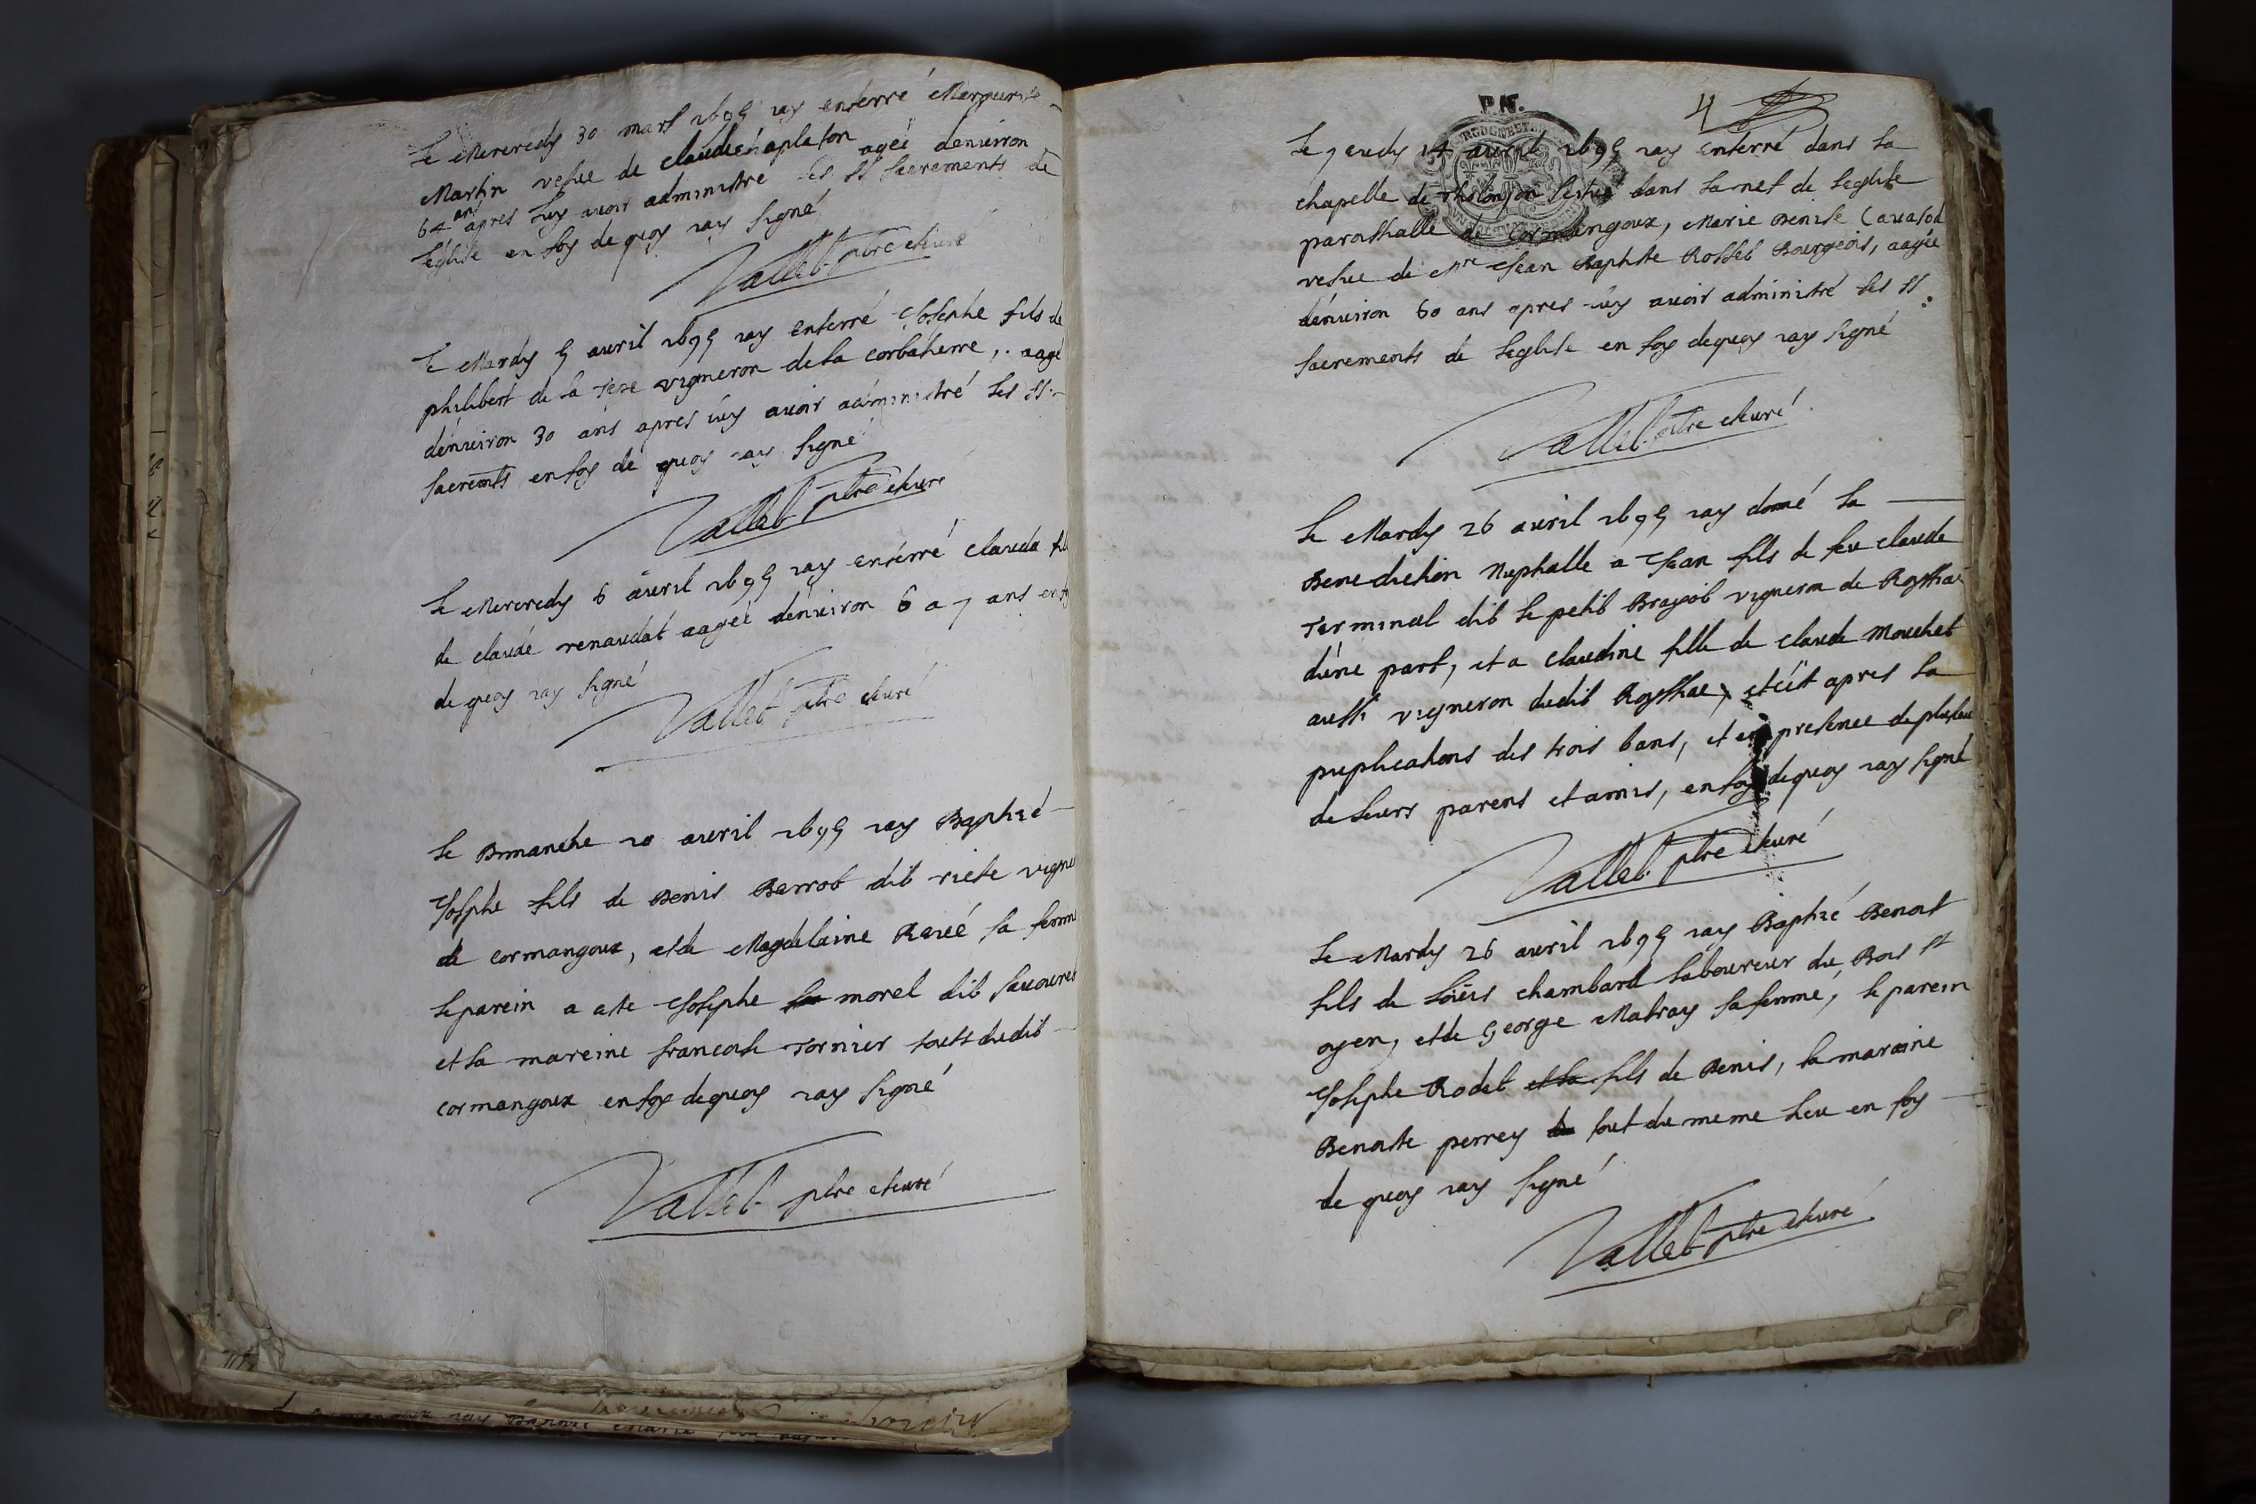 Le Mercredy 30 mars 1695 iay enterré Marguerite
Martin vefue de claude chapleton agée denuiron
64 ans apres luy auoir administré les SS sacrements de
leglise en foy de quoy iay signé
Vallet ptre et curé
Le Mardy 5 auril 1695 iay enterré Josephe fils de
philibert de la vigneron de la corbatiere, aagé
denuiron 30 ans apres luy auoir administré les SS
sacremts en foy de quoy iay signé
Vallet ptre et curé
Le Mercredy 6 auril 1695 iay enterré clauda
de claude renaudat aagée denuiron 6 a 7 ans en
de quoy iay signé
Vallet ptre et curé
Le Dimanche 10 auril 1695 iay Baptizé
Josephe fils de Denis Berrot dit
de cormangoux, et de Magdelaine sa femme
le parein a este Josephe morel dit
et la mareine francoise Tornier touts dudit
cormangoux en foy de quoy iay signé
Vallet ptre et curé
4
Le Jeudy 14 auril 1695 iay enterré dans la
chapelle de dans la nef de leglise
parosialle de Cormangoux, Marie Denise
vefue de Mre Jean Baptiste Rosset Bourgeois, aagée
denuiron 60 ans apres luy auoir administré les SS
sacrements de leglise en foy de quoy iay signé
Vallet ptre et curé
Le Mardy 26 auril 1695 iay doné la
Benediction Nuptialle a Jean fils de feu claude
Terminal dit le petit vigneron de Roissiat
dune part, et a claudine fille de claude Mouchet
aussi vigneron dudit Roissiat, et cest apres la
puplications des trois bans, et en presence de plusieurs
de leurs parens et amis, en foy de quoy iay signé
Vallet ptre et curé
Le Mardy 26 auril 1695 iay Baptizé Benoit
fils de Loüis chambard laboureur du Bois St
oyen, et de George Matray sa femme, le parein
Josephe Rodet et la fils de Denis, la mareine
Benoite perrey tout du meme lieu en foy
de quoy iay signé
Vallet ptre et curé